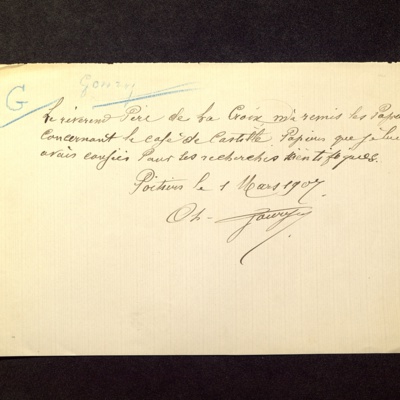 G
Gourgy
Le révérend Père de la Croix m'a remis les Papiers
concernant le café de Castille, Papiers que je lui
avais confiés Pour les recherches scientifiques.
Poitiers le 1 Mars 1907
Ch.